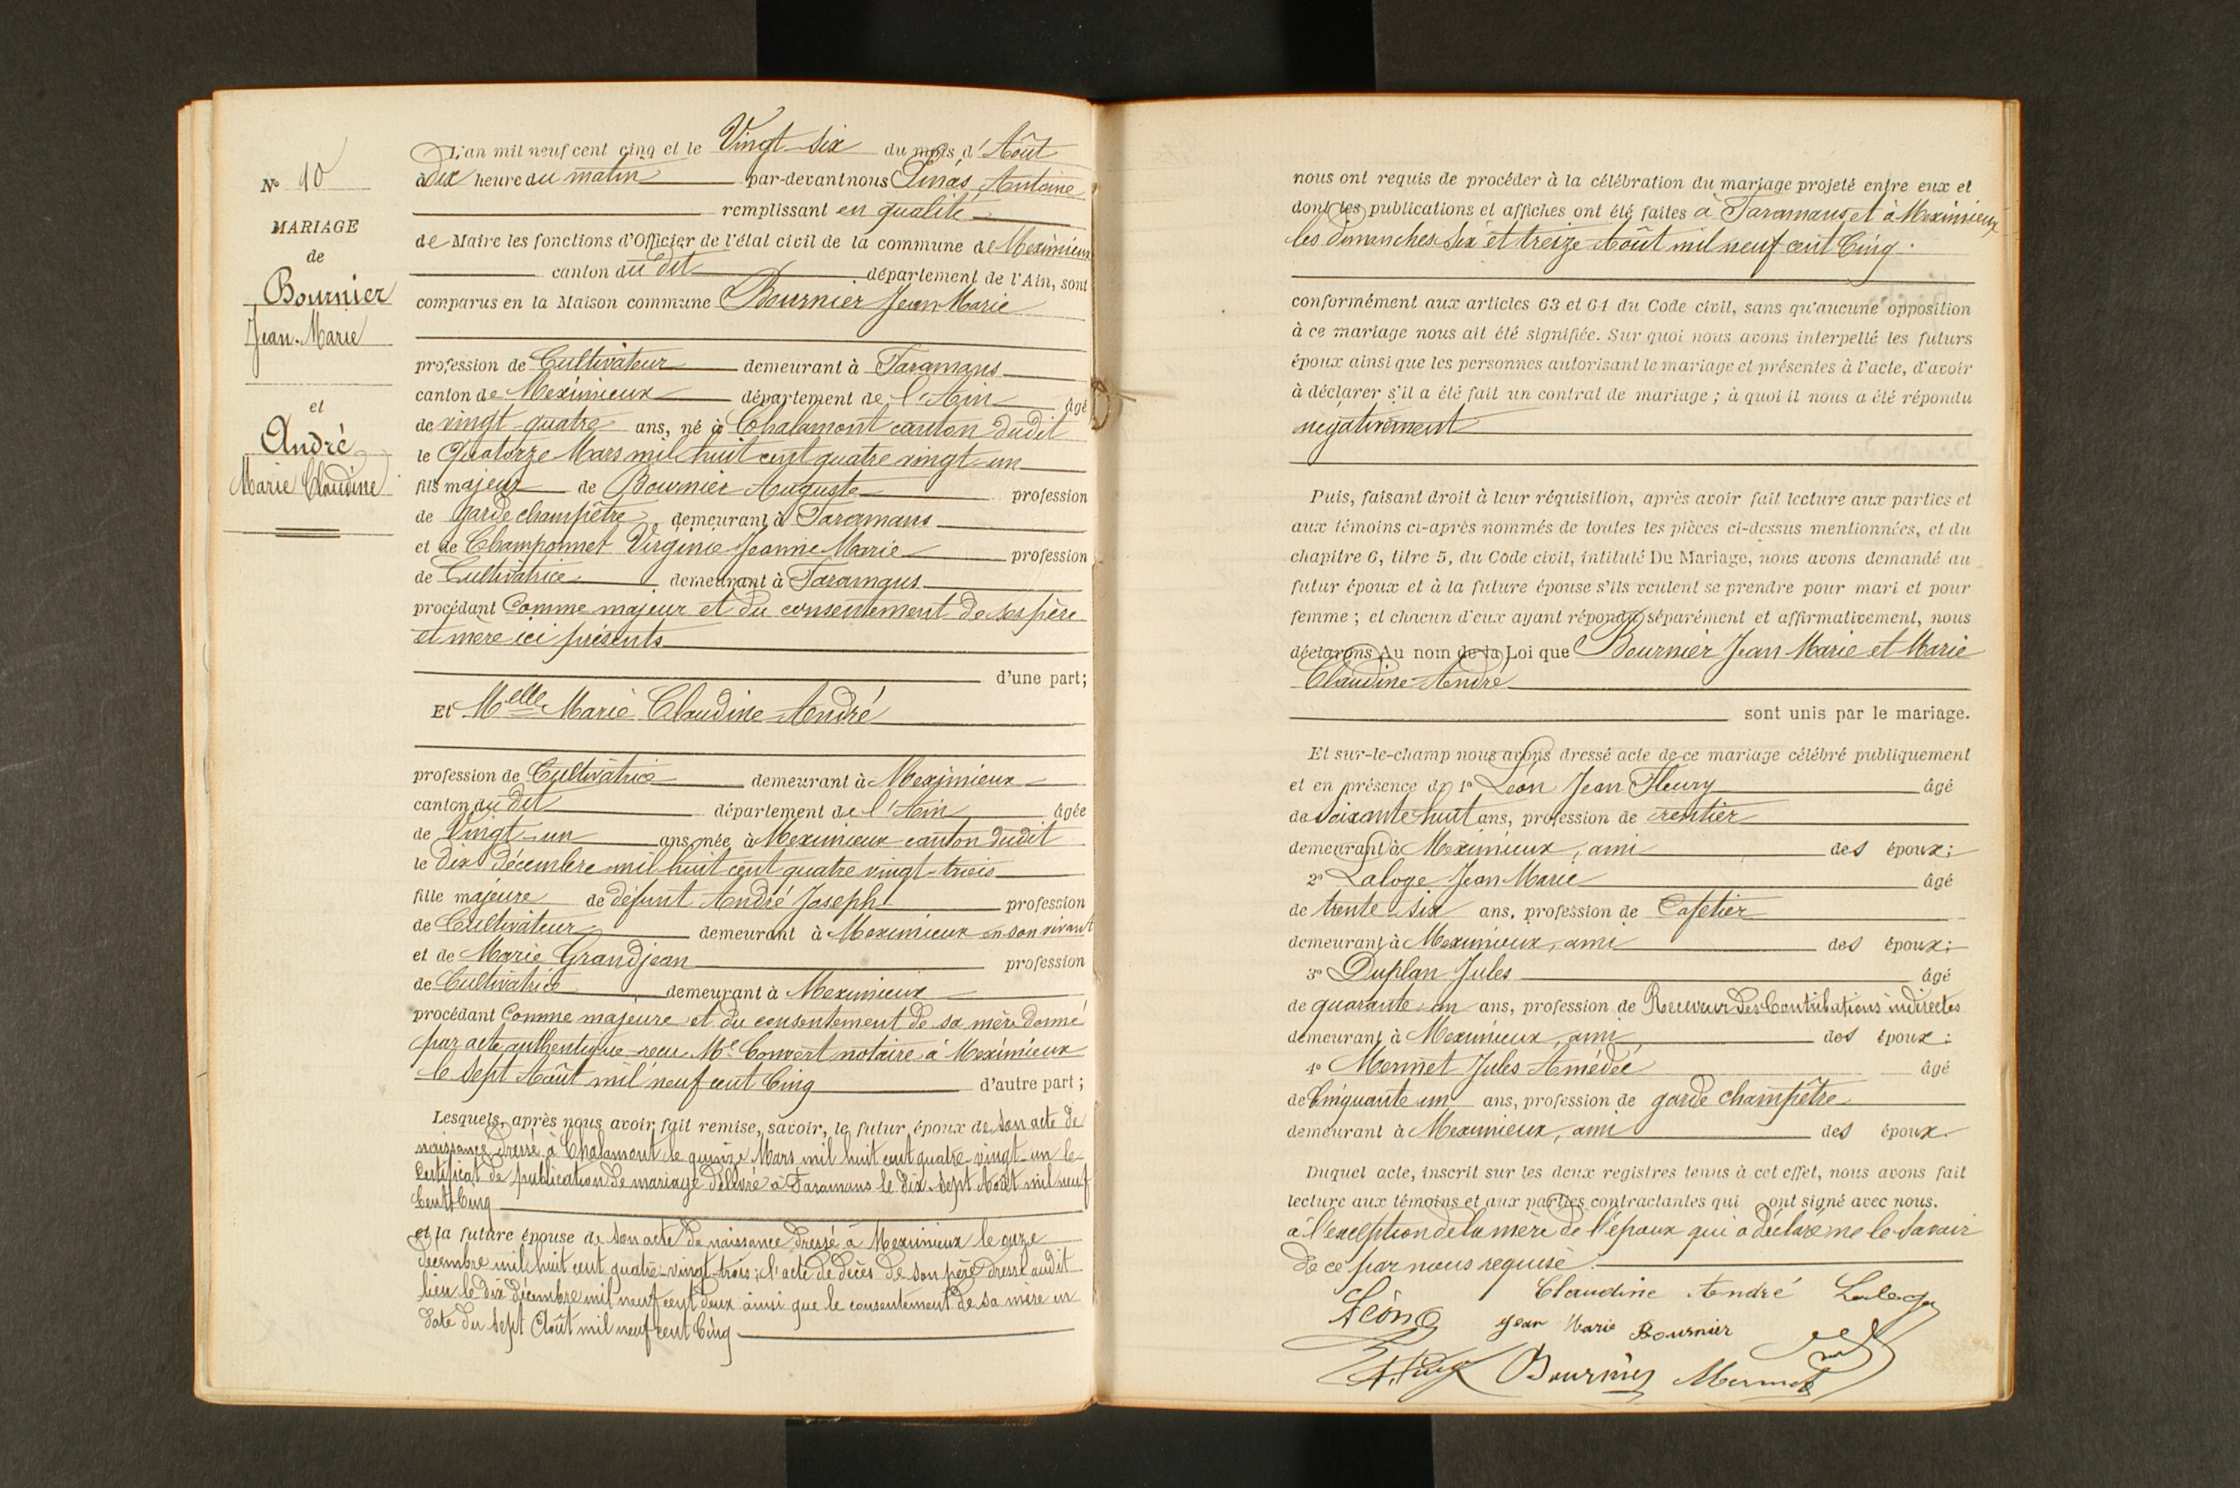 N° 10
MARIAGE
de
Bournier
Jean-Marie
et
André
Marie Claudine
L'an mil neuf cent cinq et le Vingt-six du mois d'Août
à Dix heure du matin par-devant nous Antoine
remplissant en qualité
de Maire les fonctions d'Officier de l'état civil de la commune de Meximieux
canton du dit département de l'Ain, sont
comparus en la Maison commune Bournier Jean Marie
profession de Cultivateur demeurant à Faramans
canton de Meximieux département de l'Ain âgé
de vingt-quatre ans, né à Chalamont canton dudit
le Quatorze Mars mil huit cent quatre vingt-un
fils majeur de Bournier Auguste profession
de garde champêtre demeurant à Faramans
et de Champonnet Virginie Jeanne Marie profession
de Cultivatrice demeurant à Faramans
procédant Comme majeur et du consentement de ses père
et mère ici présents
d'une part;
Et Melle Marie Claudine André
profession de Cultivatrice demeurant à Meximieux
canton du dit département de l'Ain âgée
de Vingt-un ans, née à Meximieux canton dudit
le dix décembre mil huit cent quatre vingt-trois
fille majeure de défunt André Joseph profession
de Cultivateur demeurant à Meximieux en son vivant
et de Marie Grandjean profession
de Cultivatrice demeurant à Meximieux
procédant Comme majeure et du consentement de sa mère donné
par acte authentique reçu Me Convert notaire à Meximieux
le sept Août mil neuf cent Cinq d'autre part;
Lesquels, après nous avoir fait remise, savoir, le futur époux de son acte de
naissance dressé à Chalamont le quinze Mars mil huit cent quatre-vingt-un le
Certificat de publication de mariage délivré à Faramans le dix-sept Août mil neuf
Cent Cinq
et la future épouse de son acte de naissance dressé à Meximieux le onze
décembre mil huit cent quatre-vingt-trois; l'acte de décès de son père dressé audit
lieu le dix décembre mil neuf cent deux ainsi que le consentement de sa mère en
date du sept Août mil neuf cent Cinq
nous ont requis de procéder à la célébration du mariage projeté entre eux et
dont les publications et affiches ont été faites à Faramans et à Meximieux
les dimanches six et treize Août mil neuf cent Cinq.
conformément aux articles 63 et 64 du Code civil, sans qu'aucune opposition
à ce mariage nous ait été signifiée. Sur quoi nous avons interpellé les futurs
époux ainsi que les personnes autorisant le mariage et présentes à l'acte, d'avoir
à déclarer s'il a été fait un contrat de mariage; à quoi il nous a été répondu
négativement
Puis, faisant droit à leur réquisition, après avoir fait lecture aux parties et
aux témoins ci-après nommés de toutes les pièces ci-dessus mentionnées, et du
chapitre 6, titre 5, du Code civil, intitulé Du Mariage, nous avons demandé au
futur époux et à la future épouse s'ils veulent se prendre pour mari et pour
femme; et chacun d'eux ayant répondu séparément et affirmativement, nous
déclarons Au nom de la Loi que Bournier Jean Marie et Marie
Claudine André
sont unis par le mariage.
Et sur-le-champ nous avons dressé acte de ce mariage célébré publiquement
et en présence de 1° Léon Jean Fleury âgé
de soixante huit ans, profession de rentier
demeurant à Meximieux, ami des époux;
2° Laloge Jean Marie âgé
de trente-six ans, profession de Cafetier
demeurant à Meximieux, ami des époux;
3° Duplan Jules âgé
de quarante-un ans, profession de Receveur des Contributions indirectes
demeurant à Meximieux, ami des époux;
4° Mermet Jules Amédée âgé
de Cinquante un ans, profession de garde champêtre
demeurant à Meximieux, ami des époux.
Duquel acte, inscrit sur les deux registres tenus à cet effet, nous avons fait
lecture aux témoins et aux parties contractantes qui ont signé avec nous.
à l'exception de la mere de l'époux qui a déclaré ne le savoir
de ce par nous requise.
Claudine André Laloge
Léon Jean Marie Bournier
Bournier Mermet